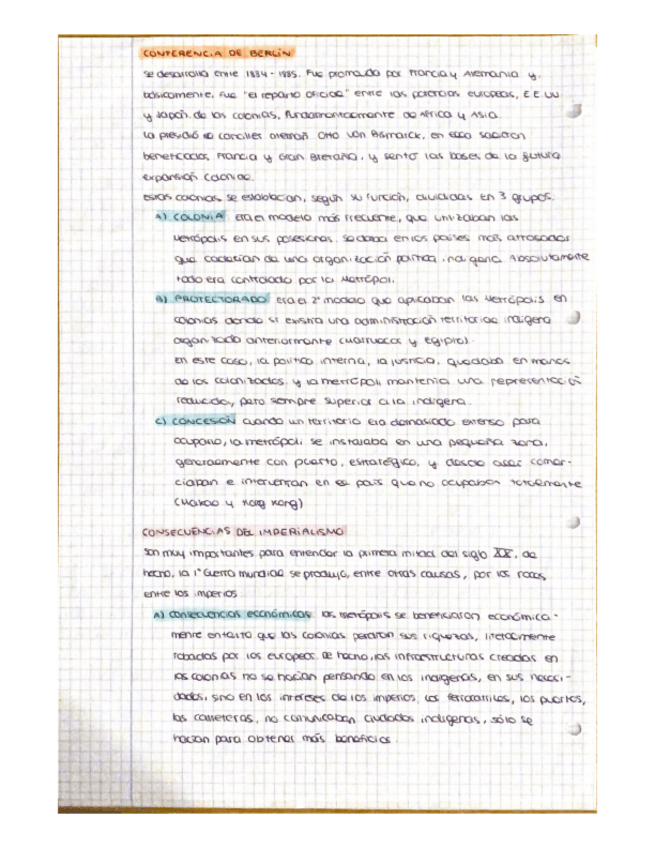 CONFERENCIA DE BERLÍN
se desarrolla entre 1884-1885. Fue promovida por Francia y Alemania y,
básicamente, fue "el reparto oficial" entre las potencias europeas, EEUU
y Japón de las colonias, fundamentalmente de África y Asia.
La presidió el canciller alemán Otto Von Bismarck, en ella salieron
beneficiados, Francia y Gran Bretaña, y sentó las bases de la futura
expansión colonial.
Estas colonias se establecían, según su función, divididas en 3 grupos:
A) COLONIA era el modelo más frecuente, que utilizaban las
Metrópolis en sus posesiones. Se daba en los países más atrasados
que carecían de una organización política indígena. Absolutamente
todo era controlado por la Metrópoli.
B) PROTECTORADO era el 2º modelo que aplicaban las Metrópolis en
colonias donde sí existía una administración territorial indígena
organizada anteriormente (Marruecos y Egipto).
En este caso, la política interna, la justicia, quedaba en manos
de los colonizados y la metrópoli mantenía una representación
reducida, pero siempre superior a la indígena.
C) CONCESIÓN cuando un territorio era demasiado extenso para
ocuparlo, la metrópoli se instalaba en una pequeña zona,
generalmente con puerto, estratégico, y desde allí comer-
ciaban e intervenían en el país que no ocupaban totalmente
(Makao y Hong Kong)
CONSECUENCIAS DEL IMPERIALISMO
Son muy importantes para entender la primera mitad del siglo XX, de
hecho, la 1ª Guerra mundial se produjo, entre otras causas, por los roces
entre los imperios.
A) Consecuencias económicas: las metrópolis se beneficiaron económica-
mente en tanto que las colonias perdían sus riquezas, literalmente
robadas por los europeos. De hecho, las infraestructuras creadas en
las colonias no se hacían pensando en los indígenas, en sus necesi-
dades, sino en los intereses de los imperios. Los ferrocarriles, los puertos,
las carreteras, no comunicaban ciudades indígenas, sólo se
hacían para obtener más beneficios.